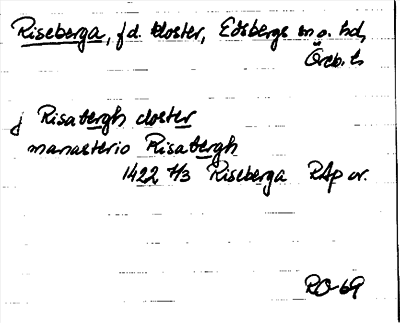 Riseberga, f d. kloster, Edsbergs sn o. hd,
Öreb. l.
j Risabergh closter
manasterio Risabergh
1422 7/3 Riseberga RAp or.
RO-69